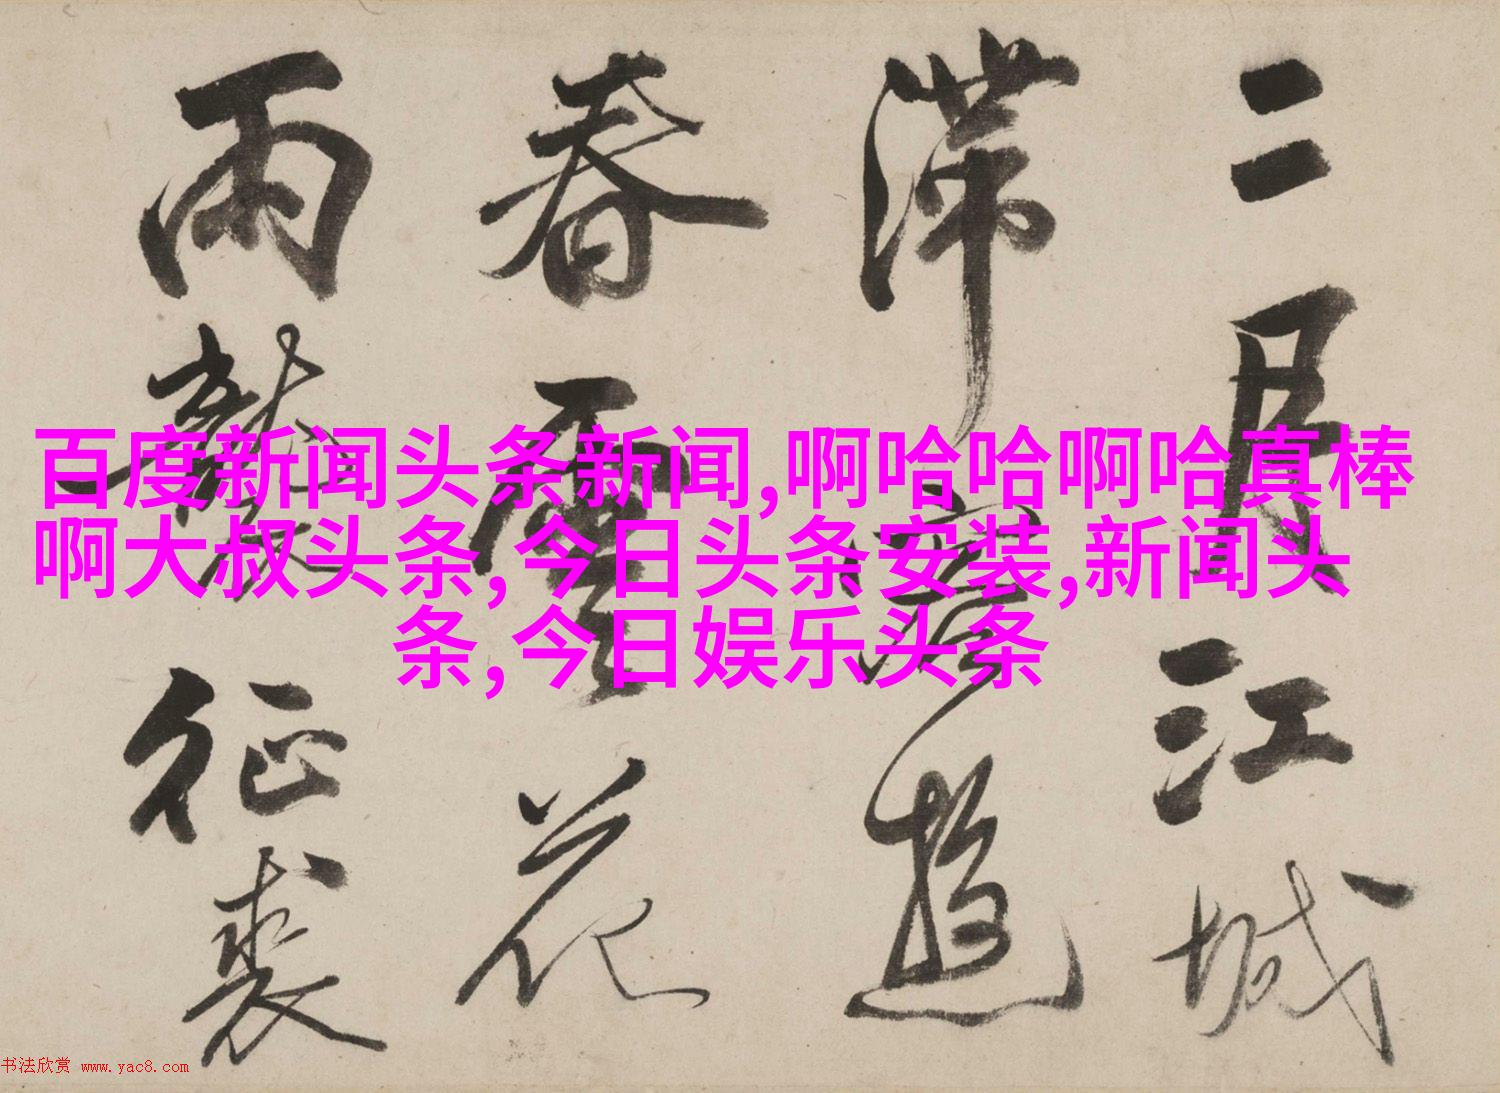 二月江城
滞游
春雲花
雨征裘
百度新闻头条新闻,啊哈哈啊哈真棒
啊大叔头条,今日头条安装,新闻头
条,今日娱乐头条
书法欣赏 www.yac8.com